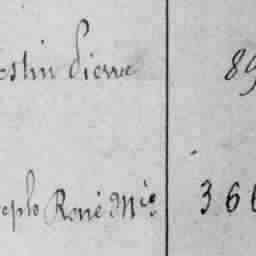 ostin Pierre 89
seph René Mie 366